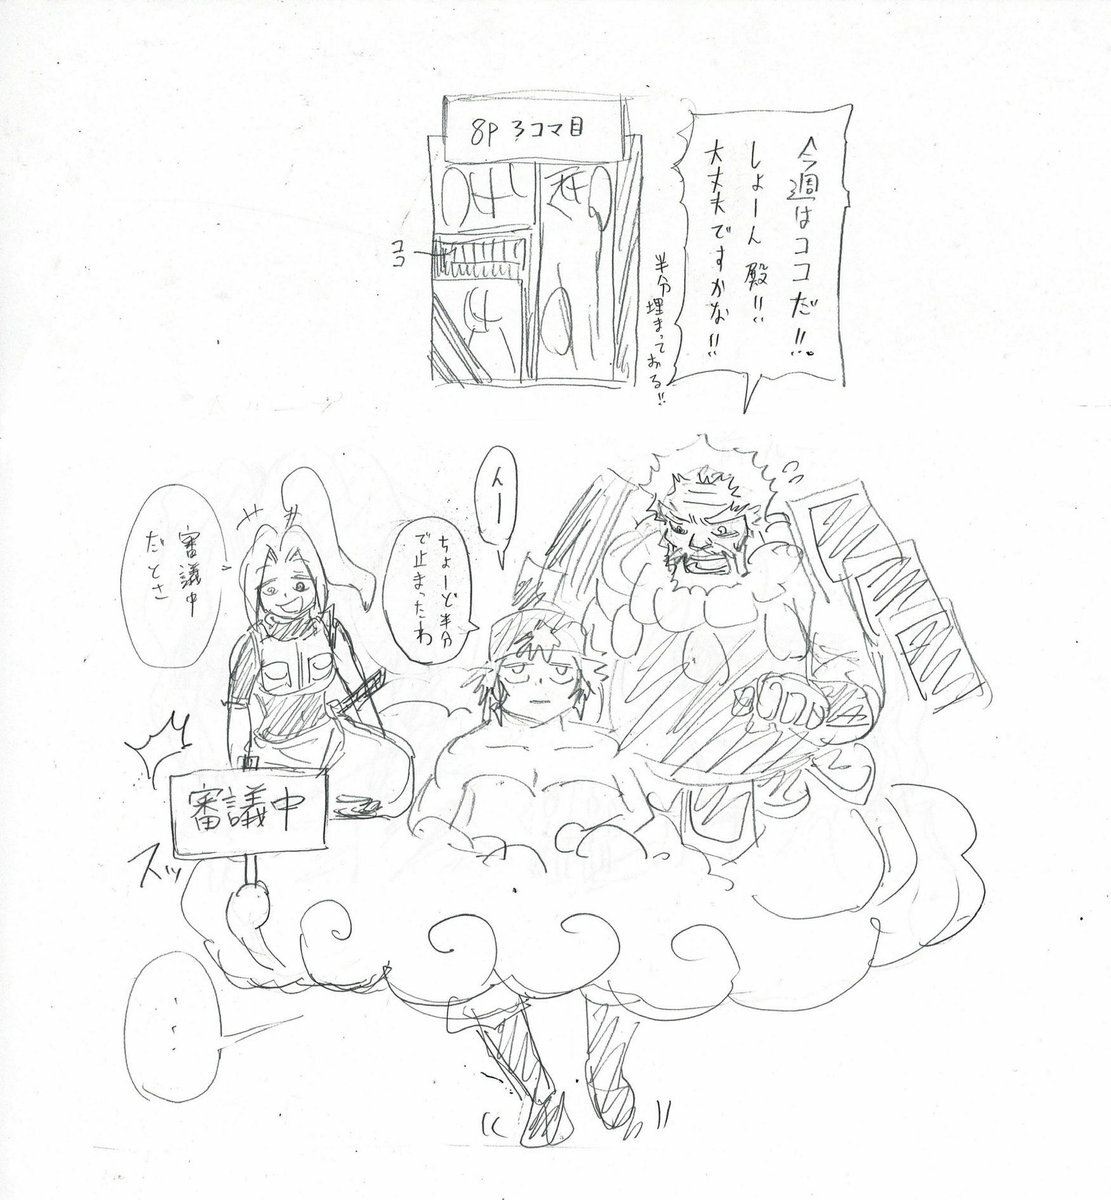 8P 3コマ目
ココ
今週はココだ!!。
しょーん殿!!
大丈夫ですかな!!
半分埋まっておる!!
んー
ちょーど半分
で止まったわ
審議中
だとさ
審議中
スッ
・・・